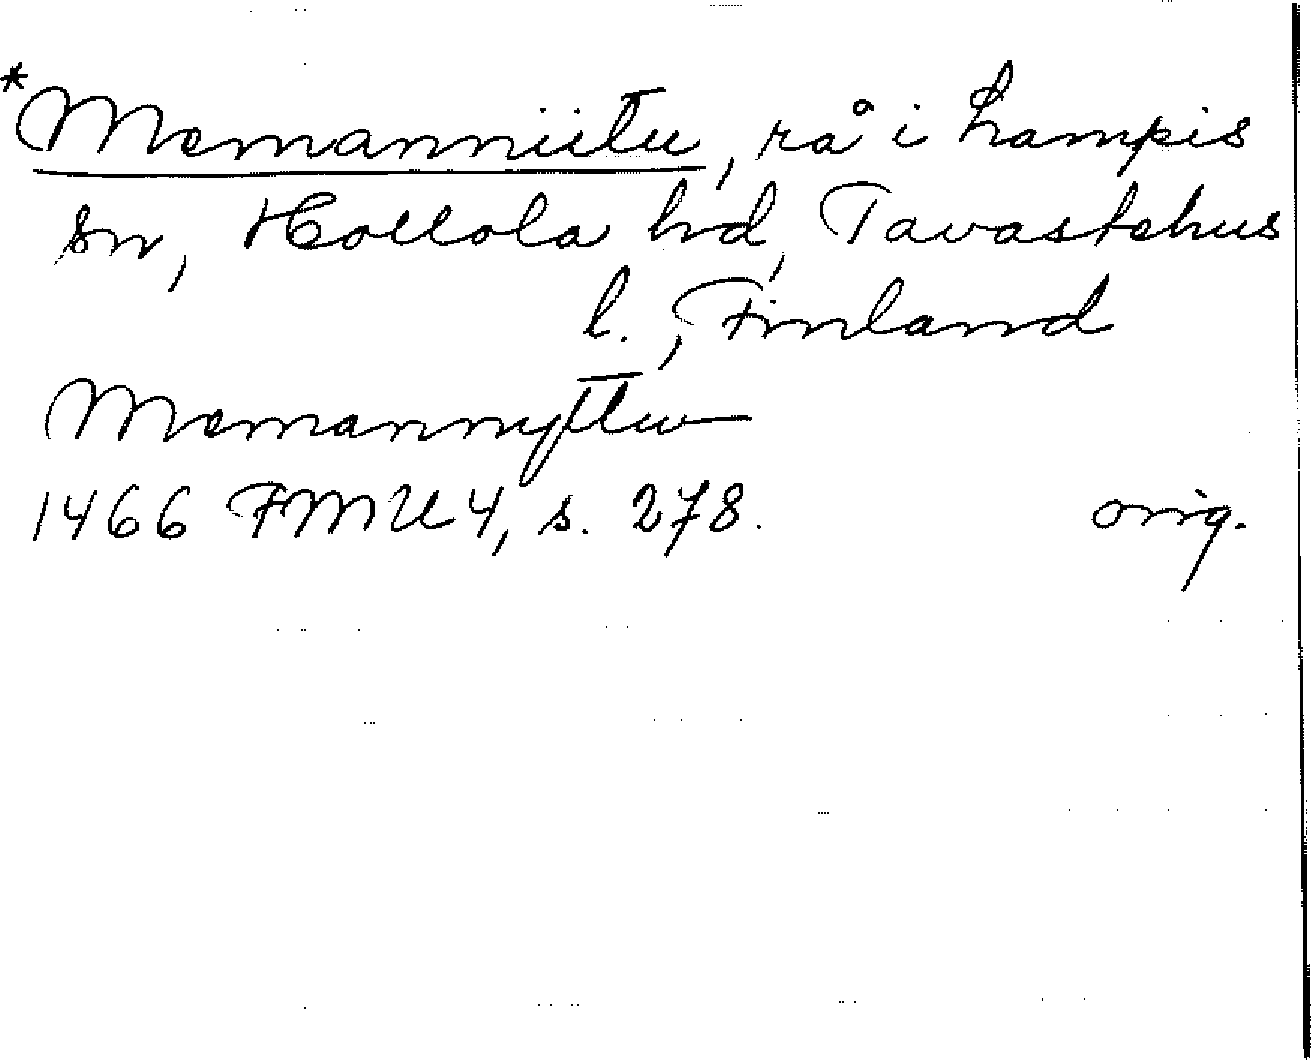 *Memanniitu, rå i Lampis
sn, Hollola hd, Tavastehus
l., Finland
Memannytw
1466 FMU 4, s. 278. orig.